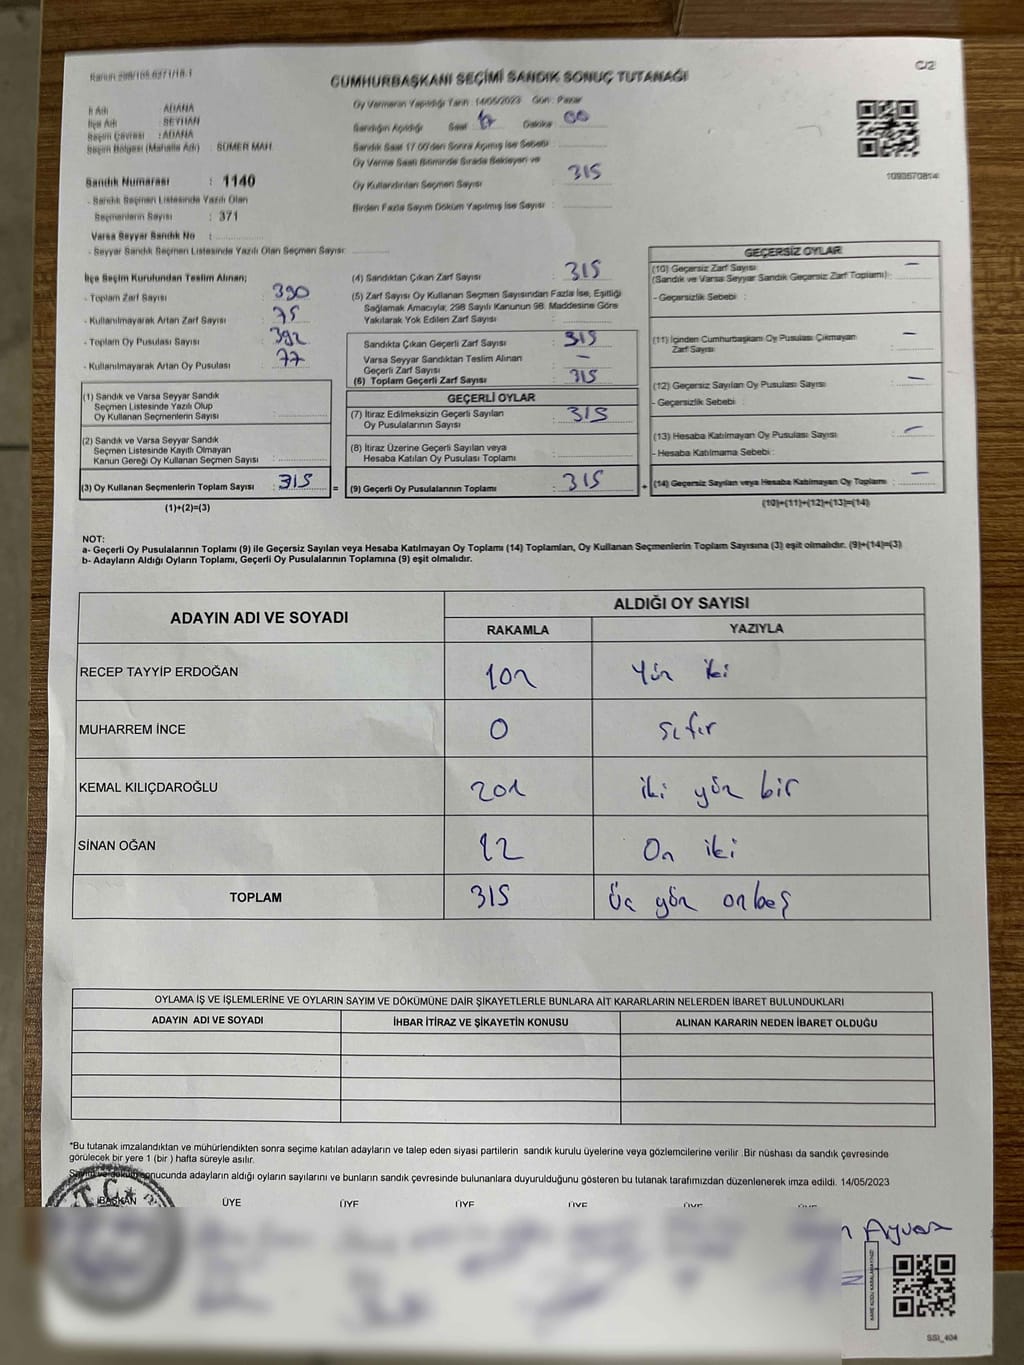 Kanun 298/105.0271/18-1
C/2
CUMHURBAŞKANI SEÇİMİ SANDIK SONUÇ TUTANAĞI
İl Adı : ADANA
İlçe Adı : SEYHAN
Seçim Çevresi : ADANA
Seçim Bölgesi (Mahalle Adı) : SÜMER MAH.
Sandık Numarası : 1140
- Sandık Seçmen Listesinde Yazılı Olan
Seçmenlerin Sayısı : 371
Varsa Seyyar Sandık No :
- Seyyar Sandık Seçmen Listesinde Yazılı Olan Seçmen Sayısı:
Oy Vermenin Yapıldığı Tarih : 14/05/2023 Gün : Pazar
Sandığın Açıldığı Saat 17 Dakika : 00
Sandık Saat 17.00'den Sonra Açılmış İse Sebebi :
Oy Verme Saati Bitiminde Sırada Bekleyen ve
Oy Kullandırılan Seçmen Sayısı : 315
Birden Fazla Sayım Döküm Yapılmış İse Sayısı :
1093570814
İlçe Seçim Kurulundan Teslim Alınan;
- Toplam Zarf Sayısı : 390
- Kullanılmayarak Artan Zarf Sayısı : 75
- Toplam Oy Pusulası Sayısı : 392
- Kullanılmayarak Artan Oy Pusulası : 77
(1) Sandık ve Varsa Seyyar Sandık
Seçmen Listesinde Yazılı Olup
Oy Kullanan Seçmenlerin Sayısı :
(2) Sandık ve Varsa Seyyar Sandık
Seçmen Listesinde Kayıtlı Olmayan
Kanun Gereği Oy Kullanan Seçmen Sayısı :
(3) Oy Kullanan Seçmenlerin Toplam Sayısı : 315 =
(1)+(2)=(3)
(4) Sandıktan Çıkan Zarf Sayısı : 315
(5) Zarf Sayısı Oy Kullanan Seçmen Sayısından Fazla İse, Eşitliği
Sağlamak Amacıyla, 298 Sayılı Kanunun 98. Maddesine Göre
Yakılarak Yok Edilen Zarf Sayısı :
Sandıkta Çıkan Geçerli Zarf Sayısı : 315
Varsa Seyyar Sandıktan Teslim Alınan
Geçerli Zarf Sayısı : –
(6) Toplam Geçerli Zarf Sayısı : 315
GEÇERLİ OYLAR
(7) İtiraz Edilmeksizin Geçerli Sayılan
Oy Pusulalarının Sayısı : 315
(8) İtiraz Üzerine Geçerli Sayılan veya
Hesaba Katılan Oy Pusulası Toplamı :
(9) Geçerli Oy Pusulalarının Toplamı : 315 +
GEÇERSİZ OYLAR
(10) Geçersiz Zarf Sayısı –
(Sandık ve Varsa Seyyar Sandık Geçersiz Zarf Toplamı) :
- Geçersizlik Sebebi :
(11) İçinden Cumhurbaşkanı Oy Pusulası Çıkmayan
Zarf Sayısı : –
(12) Geçersiz Sayılan Oy Pusulası Sayısı : –
- Geçersizlik Sebebi :
(13) Hesaba Katılmayan Oy Pusulası Sayısı : –
- Hesaba Katılmama Sebebi :
(14) Geçersiz Sayılan veya Hesaba Katılmayan Oy Toplamı : –
(10)+(11)+(12)+(13)=(14)
NOT:
a- Geçerli Oy Pusulalarının Toplamı (9) ile Geçersiz Sayılan veya Hesaba Katılmayan Oy Toplamı (14) Toplamları, Oy Kullanan Seçmenlerin Toplam Sayısına (3) eşit olmalıdır. (9)+(14)=(3)
b- Adayların Aldığı Oyların Toplamı, Geçerli Oy Pusulalarının Toplamına (9) eşit olmalıdır.
ADAYIN ADI VE SOYADI ALDIĞI OY SAYISI
RAKAMLA YAZIYLA
RECEP TAYYİP ERDOĞAN 102 Yüz iki
MUHARREM İNCE 0 sıfır
KEMAL KILIÇDAROĞLU 201 iki yüz bir
SİNAN OĞAN 12 On iki
TOPLAM 315 Üç yüz onbeş
OYLAMA İŞ VE İŞLEMLERİNE VE OYLARIN SAYIM VE DÖKÜMÜNE DAİR ŞİKAYETLERLE BUNLARA AİT KARARLARIN NELERDEN İBARET BULUNDUKLARI
ADAYIN ADI VE SOYADI İHBAR İTİRAZ VE ŞİKAYETİN KONUSU ALINAN KARARIN NEDEN İBARET OLDUĞU
*Bu tutanak imzalandıktan ve mühürlendikten sonra seçime katılan adayların ve talep eden siyasi partilerin sandık kurulu üyelerine veya gözlemcilerine verilir .Bir nüshası da sandık çevresinde
görülecek bir yere 1 (bir ) hafta süreyle asılır.
Sayım ve döküm sonucunda adayların aldığı oyların sayılarını ve bunların sandık çevresinde bulunanlara duyurulduğunu gösteren bu tutanak tarafımızdan düzenlenerek imza edildi. 14/05/2023
T.C.
BAŞKAN ÜYE ÜYE ÜYE ÜYE ÜYE ÜYE
Ayvaz
KARE KODU KARALAMAYINIZ!
SSI_404